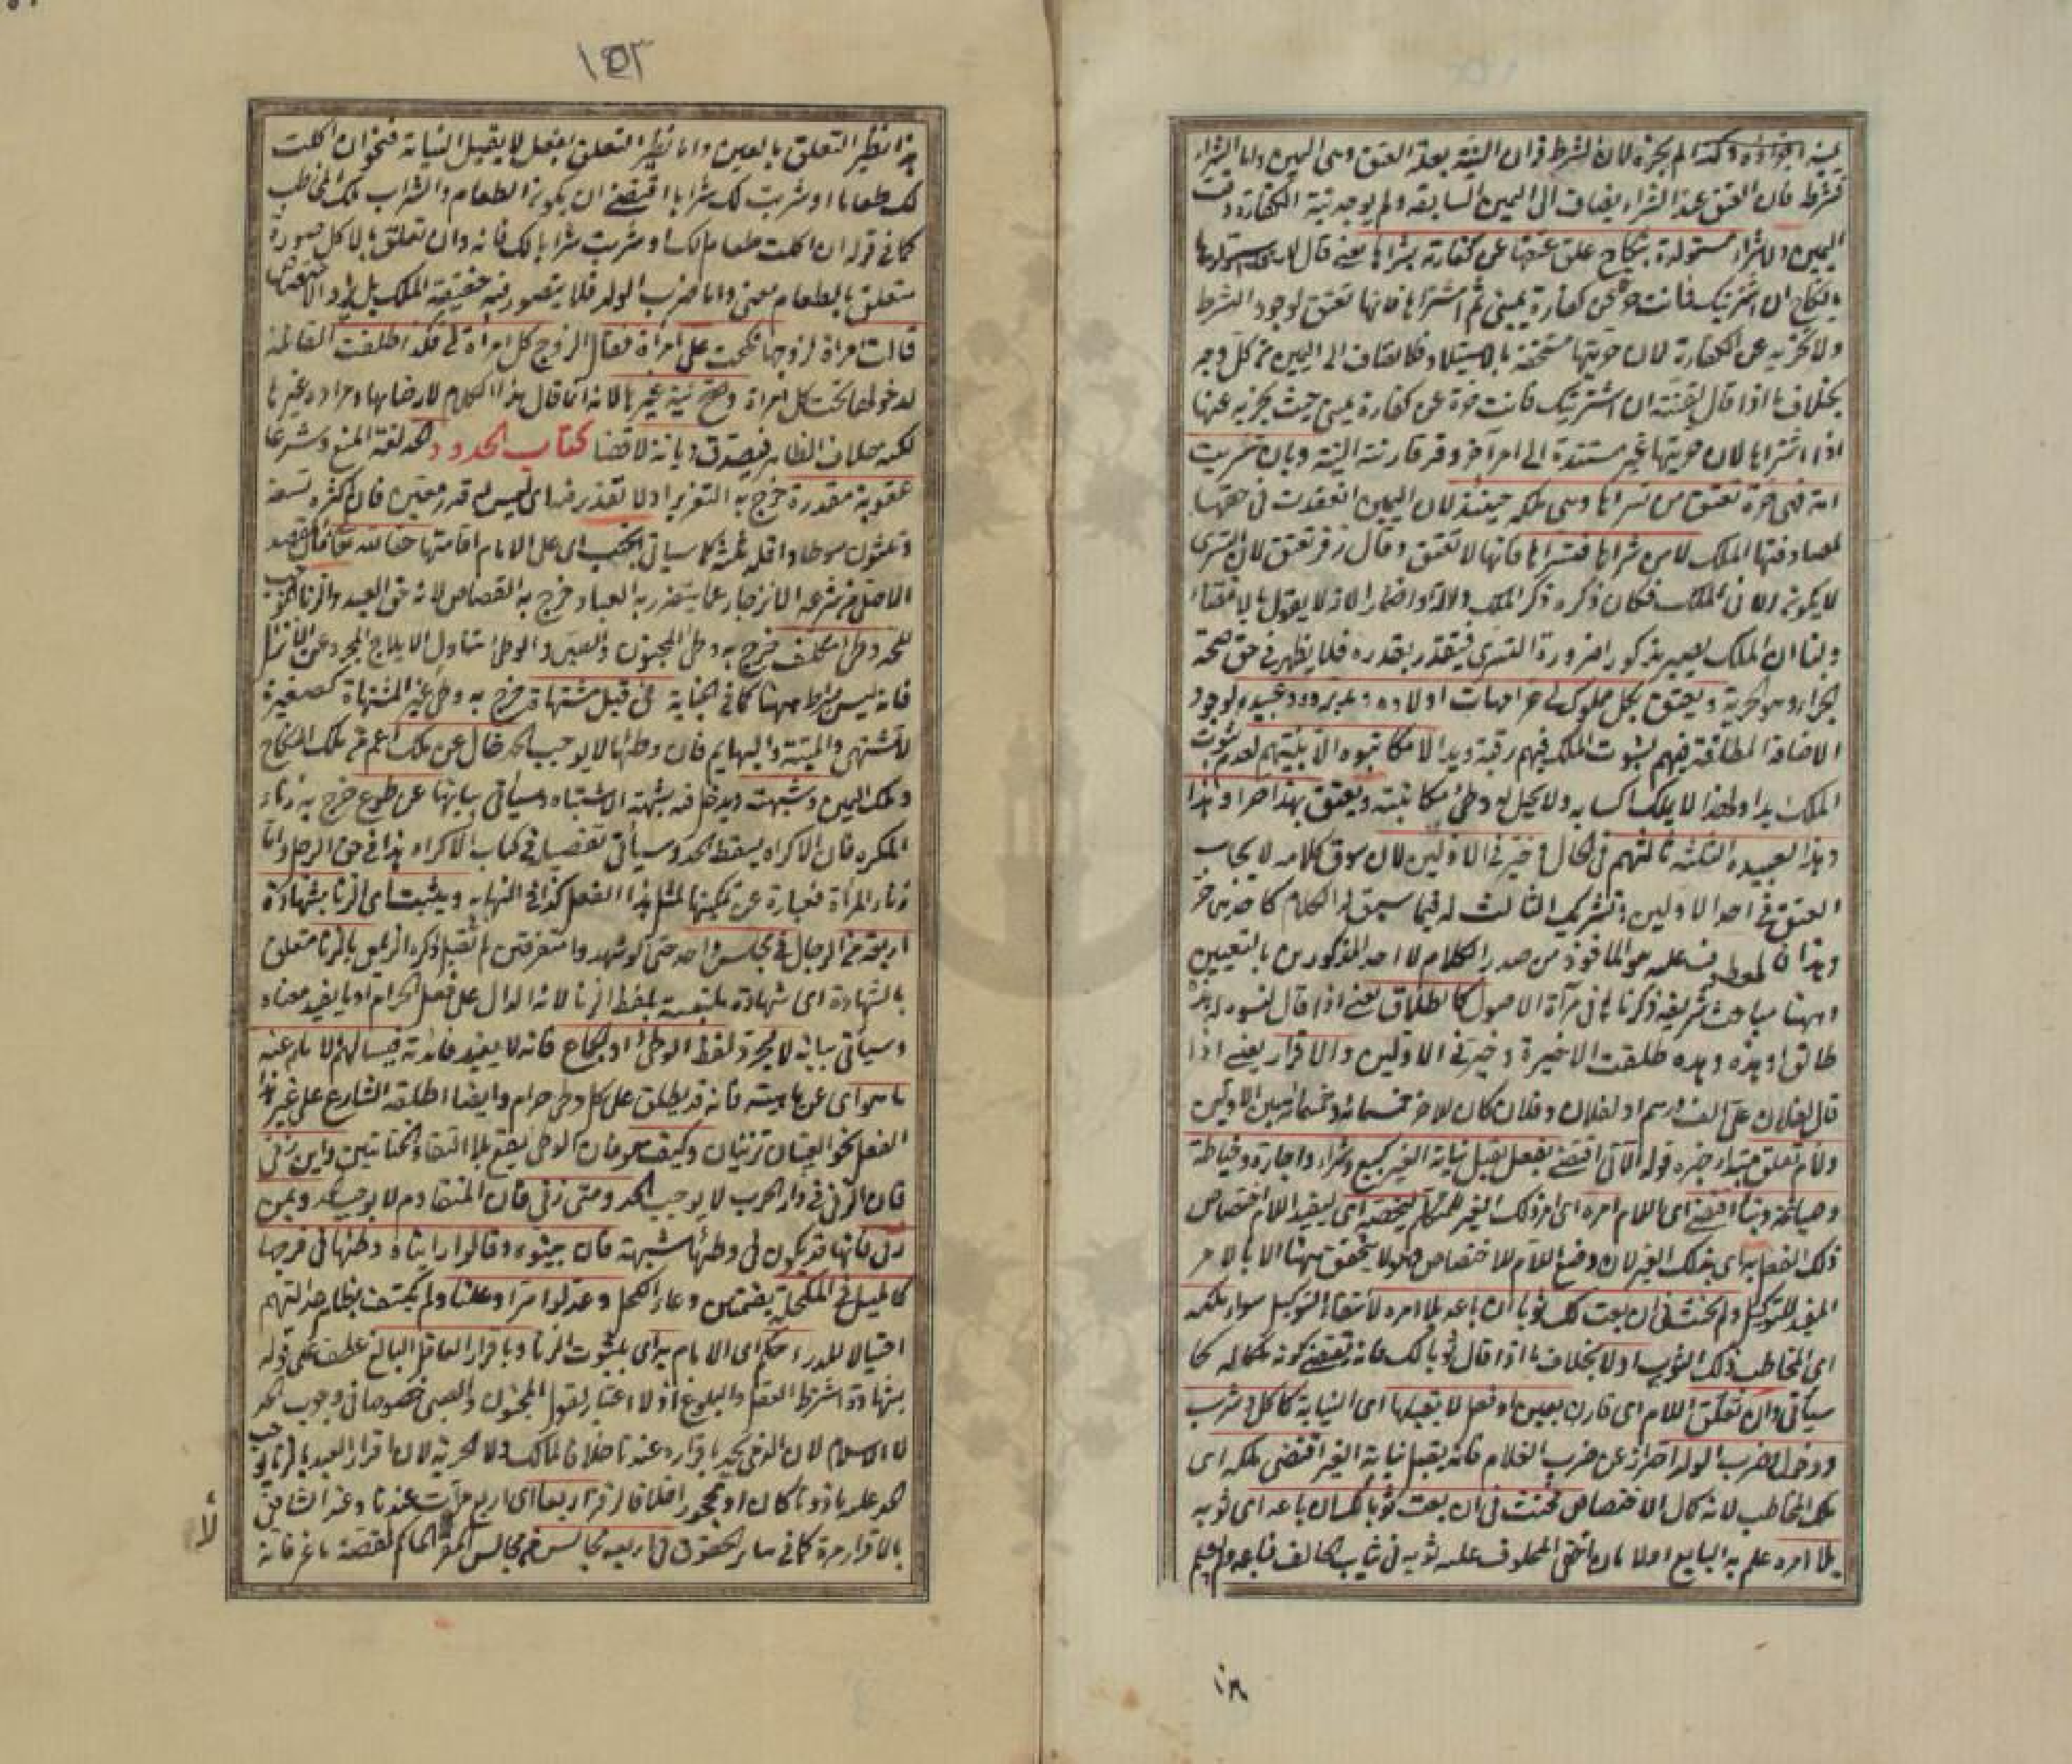 يمينه اجزأه وكذا لم يجزه لان الشرط قران النية بعلة العتق وهى اليمين واما الشراء
فشرط فان العتق عند الشراء يضاف الى اليمين السابقة ولم يوجد نية الكفارة وقت
اليمين ولا شراء مستولدة بنكاح علق عتقها عن كفارته بشرائها يعنى قال لامة استولدها
بالنكاح ان اشتريتك فانت حرة عن كفارة يمينى ثم اشتراها فانها تعتق لوجود الشرط
ولا تجزيه عن الكفارة لان حريتها مستحقة بالاستيلاد فلا تضاف الى اليمين من كل وجه
بخلاف ما اذا قال لقنة ان اشتريتك فانت حرة عن كفارة يمينى حيث يجزيه عنها
اذا اشتراها لان حريتها غير مستندة الى امر آخر وقد قارنته النية وبان تسريت
امة فهى حرة تعتق من تسراها وهى ملكه حينئذ لان اليمين انعقدت فى حقها
لمصادفتها الملك لا من شراها فتسراها فانها لا تعتق وقال زفر تعتق لان التسرى
لا يكون الا فى الملك فكان ذكره ذكر الملك
ولنا ان الملك يصير مذكورا ضرورة التسرى فيتقدر بقدره فلا يظهر فى حق صحة
الجزاء وهو الحرية ويعتق بكل مملوك لى حر امهات اولاده ومدبروه وعبيده لوجود
الاضافة المطلقة فيهم لثبوت الملك فيهم رقبة ويدا لا مكاتبوه الا بنيتهم لعدم ثبوت
الملك يدا ولهذا لا يملك اكسابه ولا يحل له وطئ مكاتبته ويعتق بهذا حر او هذا
وهذا لعبيده الثلثة ثالثهم فى الحال وخير فى الاولين لان سوق كلامه لايجاب
العتق فى احد الاولين وتشريك الثالث له فيما سيق له الكلام كاحدهما حر
وهذا فالمعطوف عليه هو المأخوذ من صدر الكلام لا احد المذكورين بالتعيين
وههنا مباحث شريفة ذكرناها فى مرآة الاصول كالطلاق يعنى اذا قال لنسوة هذه
طالق او هذه وهذه طلقت الاخيرة وخير فى الاوليين والاقرار يعنى اذا
قال لفلان على الف درهم او لفلان وفلان كان للاخر خمسمائة وخمسمائة بين الاولين
ولام تعلق مبتدأ خبره قوله الآتى اقتضى بفعل يقبل نيابة الغير كبيع وشراء واجارة وخياطة
وصياغة وبناء اقتضى اى اللام امره اى امر ذلك الغير للمتكلم ليخصه اى ليفيد اللام اختصاص
ذلك الفعل به اى بذلك الغير لان وضع اللام للاختصاص وهو لا يتحقق ههنا الا بالامر
المفيد للتوكيل ولم يحنث فى ان بعت لك ثوبا ان باعه بلا امره لانتفاء التوكيل سواء ملكه
اى المخاطب ذلك الثوب او لا بخلاف ما اذا قال ثوبا لك فانه يقتضى كونه ملكا له كما
سيأتى وان تعلق اللام اى قارن بعين او فعل لا يقبلها اى النيابة كاكل وشرب
ودخول وضرب الولد احتراز عن ضرب الغلام فانه يقبل نيابة الغير اقتضى ملكه اى
ملك المخاطب لانه كمال الاختصاص فحنث فى ان بعت ثوبا لك ان باعه اى ثوبه
بلا امره علم به البايع او لا بان اخفى المحلوف عليه ثوبه فى ثياب الحالف فباعه ولم يعلم
١٥٣
هذا نظير التعلق بالعين واما نظير التعلق بفعل لا يقبل النيابة فنحو ان اكلت
لك طعاما او شربت لك شرابا اقتضى ان يكون الطعام والشراب ملك المخاطب
كما فى قوله ان اكلت طعاما لك او شربت شرابا لك فانه وان تعلق بالاكل صورة
متعلق بالطعام معنى واما ضرب الولد فلا يتصور فيه حقيقة الملك بل يراد الاختصاص
قالت امرأة لزوجها نكحت على امرأة فقال الزوج كل امرأة لى فكذا طلقت القائلة
لدخولها تحت كل امرأة وصح نية غيرها لانه انما قال هذا الكلام لارضائها ومراده غيرها
لكنه خلاف الظاهر فيصدق ديانة لا قضاء كتاب الحدود الحد لغة المنع وشرعا
عقوبة مقدرة خرج به التعزير اذ لا تقدير فيه اى ليس له قدر معين فان اكثره تسعة
وثلثون سوطا واقله ثلثة كما سيأتى تجب اى على الامام اقامتها حقا لله تعالى فان المقصد
الاصلى من شرعه الانزجار عما يتضرر به العباد خرج به القصاص لانه حق العبد والزنا الموجب
للحد وطئ مكلف خرج به وطئ المجنون والصبى والوطئ متناول الايلاج المجرد عن الانزال
فانه ليس بشرط ههنا كما فى الجنابة فى قبل مشتهاة خرج به وطئ غير المشتهاة كصغيرة
لا تشتهى والميتة والبهايم فان وطئها لا يوجب الحد خال عن ملك اعم من ملك النكاح
وملك اليمين وشبهته ويدخل فيه شبهة الاشتباه وسيأتى بيانها عن طوع خرج به زناء
المكره فان الاكراه يسقط الحد وسيأتى تفصيله فى كتاب الاكراه هذا فى حق الرجل واما
زناء المرأة فعبارة عن تمكينها لمثل هذا الفعل كذا فى النهاية ويثبت اى الزنا بشهادة
اربعة من الرجال فى مجلس واحد حتى لو شهدوا متفرقين لم تقبل ذكره الزيلعى بالزنا متعلق
بالشهادة اى شهادة ملتبسة بلفظ الزنا لانه الدال على فعل الحرام او ما يفيد معناه
وسيأتى بيانه لا مجرد لفظ الوطئ او الجماع فانه لا يفيد فائدته فيسألهم الامام عنه
ما هو اى عن ماهيته فانه قد يطلق على كل وطئ حرام وايضا اطلقه الشارع على غير هذا
الفعل نحو العينان تزنيان وكيف هو فان الوطئ يقع بلا التقاء الختانين واين زنى
فان الزنى فى دار الحرب لا يوجب الحد ومتى زنى فان المتقادم لا يوجب الحد وبمن
زنى فانها قد يكون فى وطئها شبهة فان بينوه وقالوا رأيناه وطئها فى فرجها
كالميل فى المكحلة بضمتين وعاء الكحل وعدلوا سرا وعلنا ولم يكتف بظاهر عدالتهم
احتيالا للدرء حكم اى الامام به اى بثبوت الزنا وباقرار العاقل البالغ عطف على قوله
بشهادة اشترط العقل والبلوغ اذ لا اعتبار لقول المجنون والصبى خصوصا فى وجوب الحد
لا الاسلام لان الذمى يحد باقراره عندنا خلافا لمالك ولا الحرية لان اقرار العبد بالزنا يوجب
الحد عليه مأذونا كان او محجورا خلافا لزفر اربعا اى اربع مرات عندنا وعند الشافعى
بالاقرار مرة كما فى سائر الحقوق فى اربعة مجالس من مجالس المقر الحاكم لقصة ماعز فانه